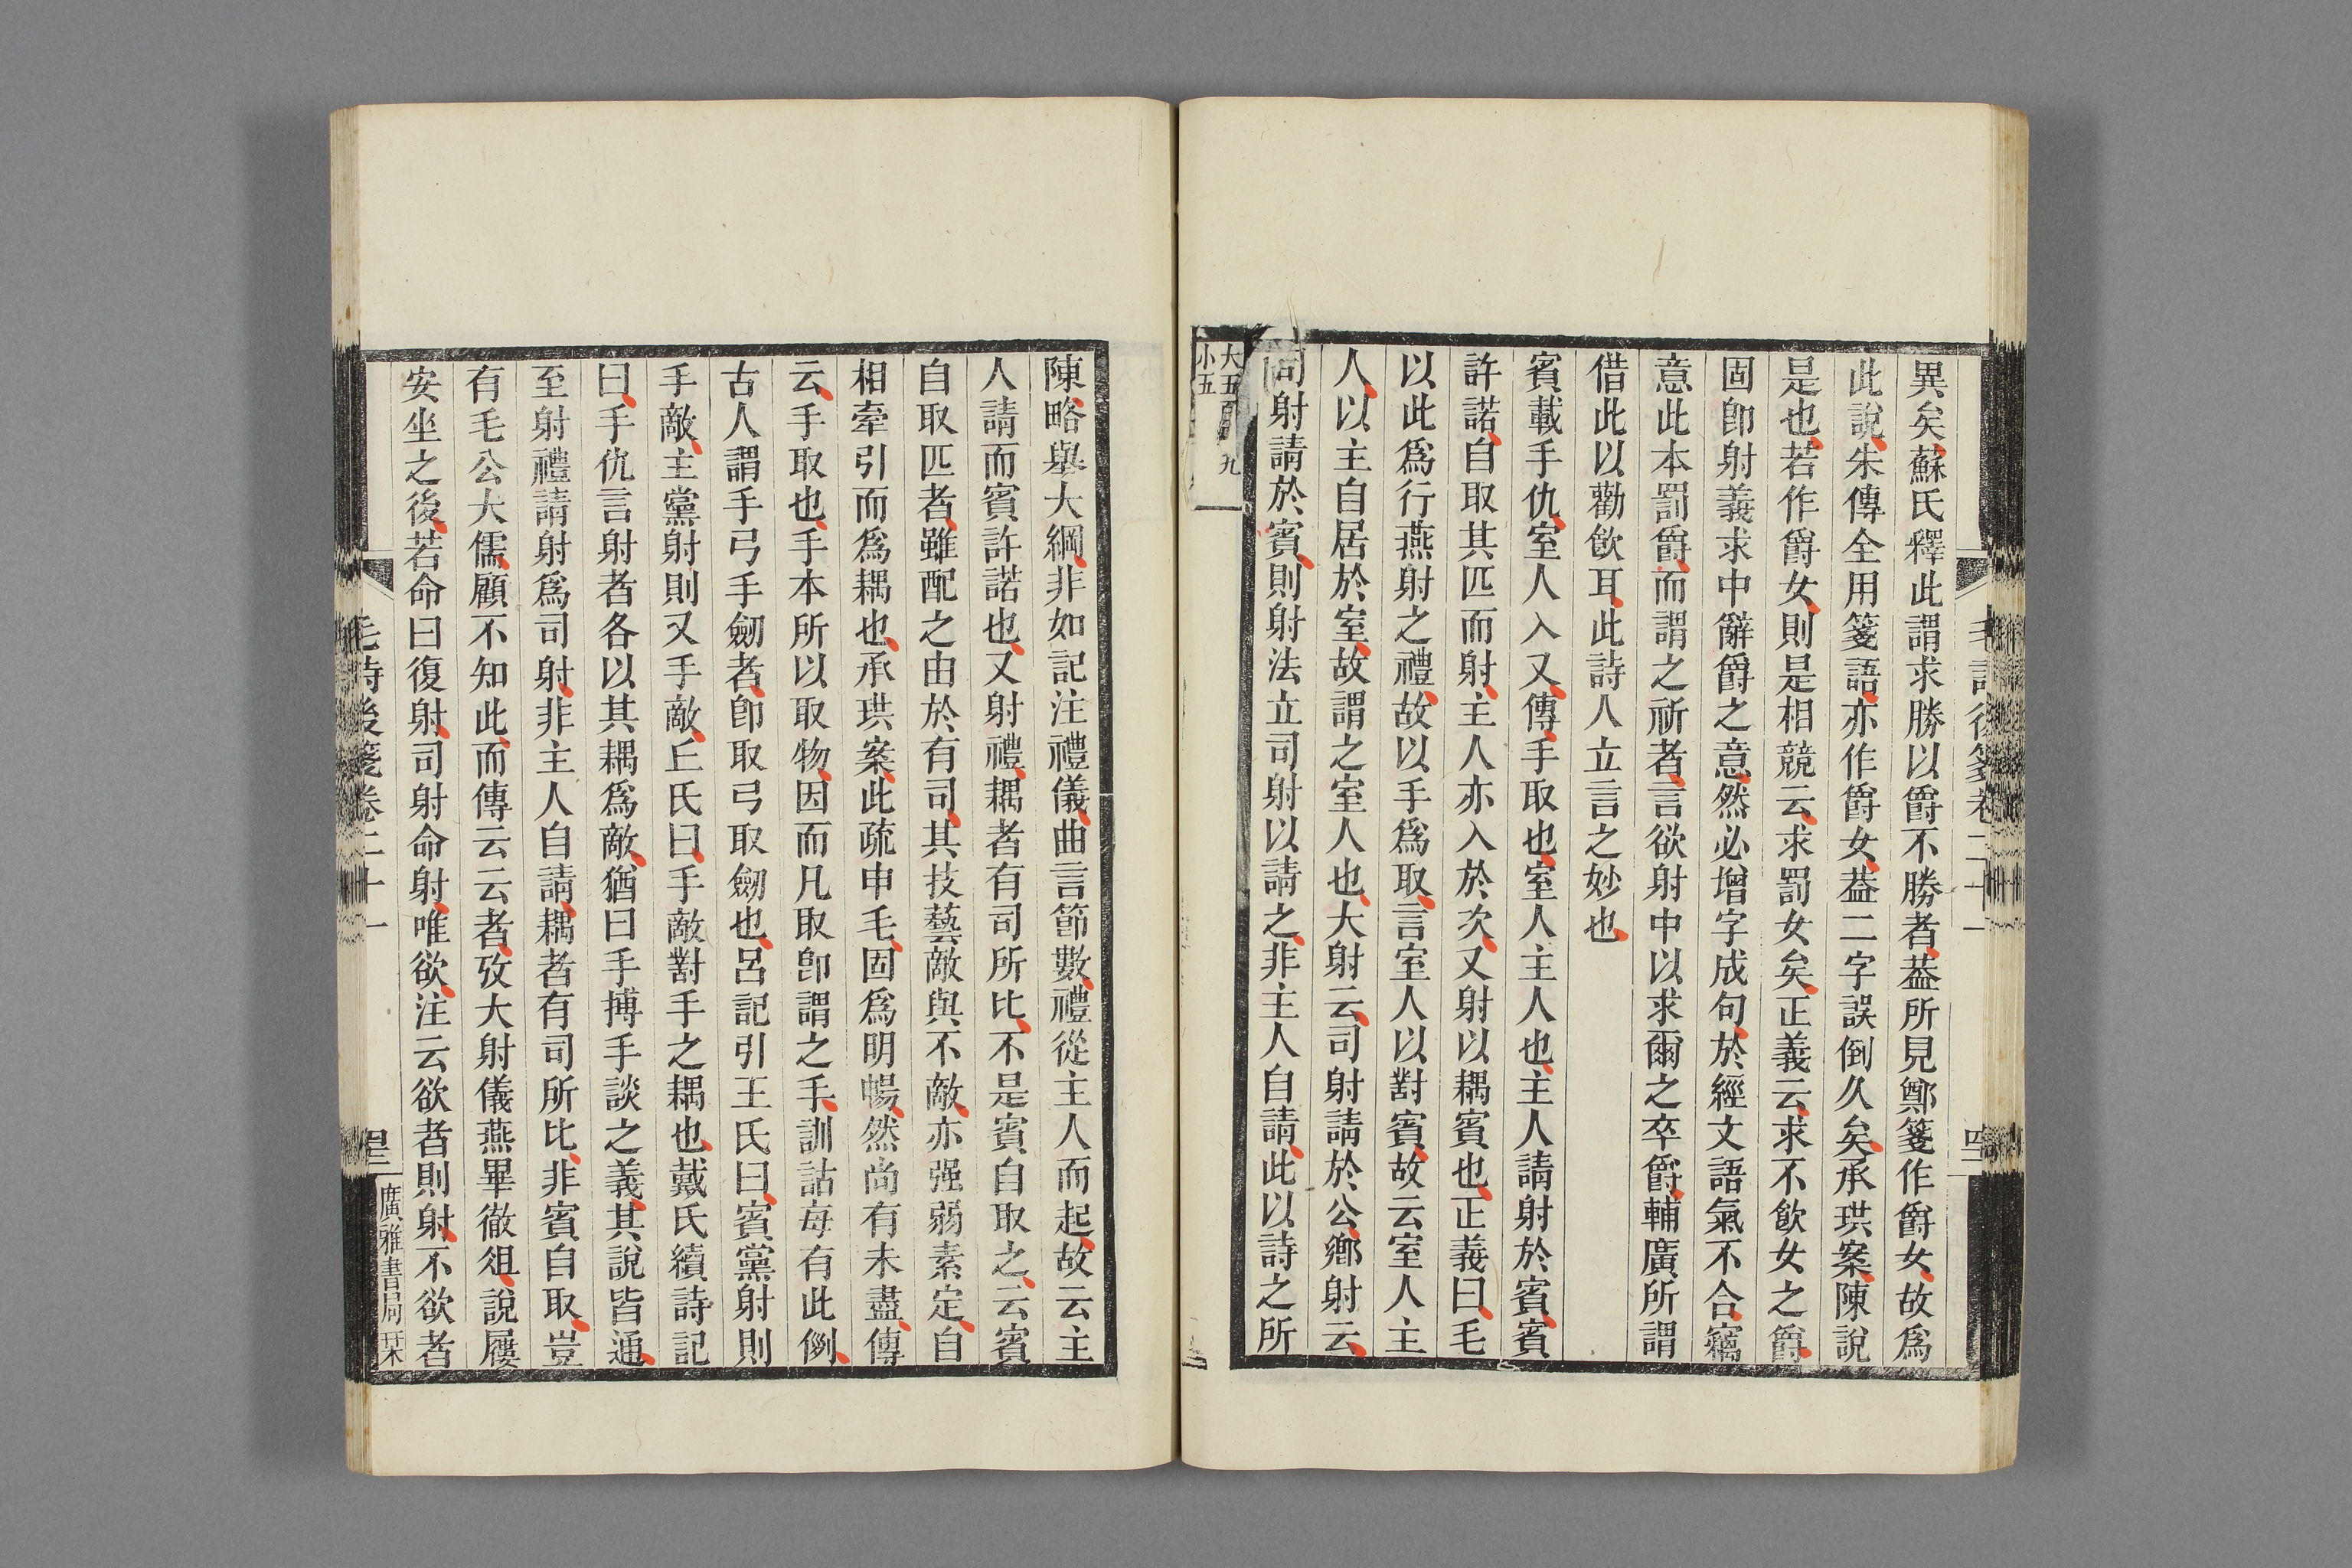 異矣蘇氏釋此謂求勝以爵不勝者葢所見鄭箋作爵女故爲
此說朱傳全用箋語亦作爵女葢二字誤倒久矣承珙案陳說
是也若作爵女則是相競云求罰女矣正義云求不飮女之爵
固卽射義求中辭爵之意然必增字成句於經文語氣不合竊
意此本罰爵而謂之祈者言欲射中以求爾之卒爵輔廣所謂
借此以勸飮耳此詩人立言之妙也
賓載手仇室人入又傳手取也室人主人也主人請射於賓賓
許諾自取其匹而射主人亦入於次又射以耦賓也正義曰毛
以此爲行燕射之禮故以手爲取言室人以對賓故云室人主
人以主自居於室故謂之室人也大射云司射請於公鄉射云
司射請於賓則射法立司射以請之非主人自請此以詩之所
大五 九
小五
陳略舉大綱非如記注禮儀曲言節數禮從主人而起故云主
人請而賓許諾也又射禮耦者有司所比不是賓自取之云賓
自取匹者雖配之由於有司其技藝敵與不敵亦强弱素定自
相牽引而爲耦也承珙案此疏申毛固爲明暢然尚有未盡傳
云手取也手本所以取物因而凡取卽謂之手訓詁每有此例
古人謂手弓手劒者卽取弓取劒也呂記引王氏曰賓黨射則
手敵主黨射則又手敵丘氏曰手敵對手之耦也戴氏續詩記
曰手仇言射者各以其耦爲敵猶曰手搏手談之義其說皆通
至射禮請射爲司射非主人自請耦者有司所比非賓自取豈
有毛公大儒顧不知此而傳云云者攷大射儀燕畢徹俎說屨
安坐之後若命曰復射司射命射唯欲注云欲者則射不欲者
毛詩後箋卷二十一
廣雅書局栞